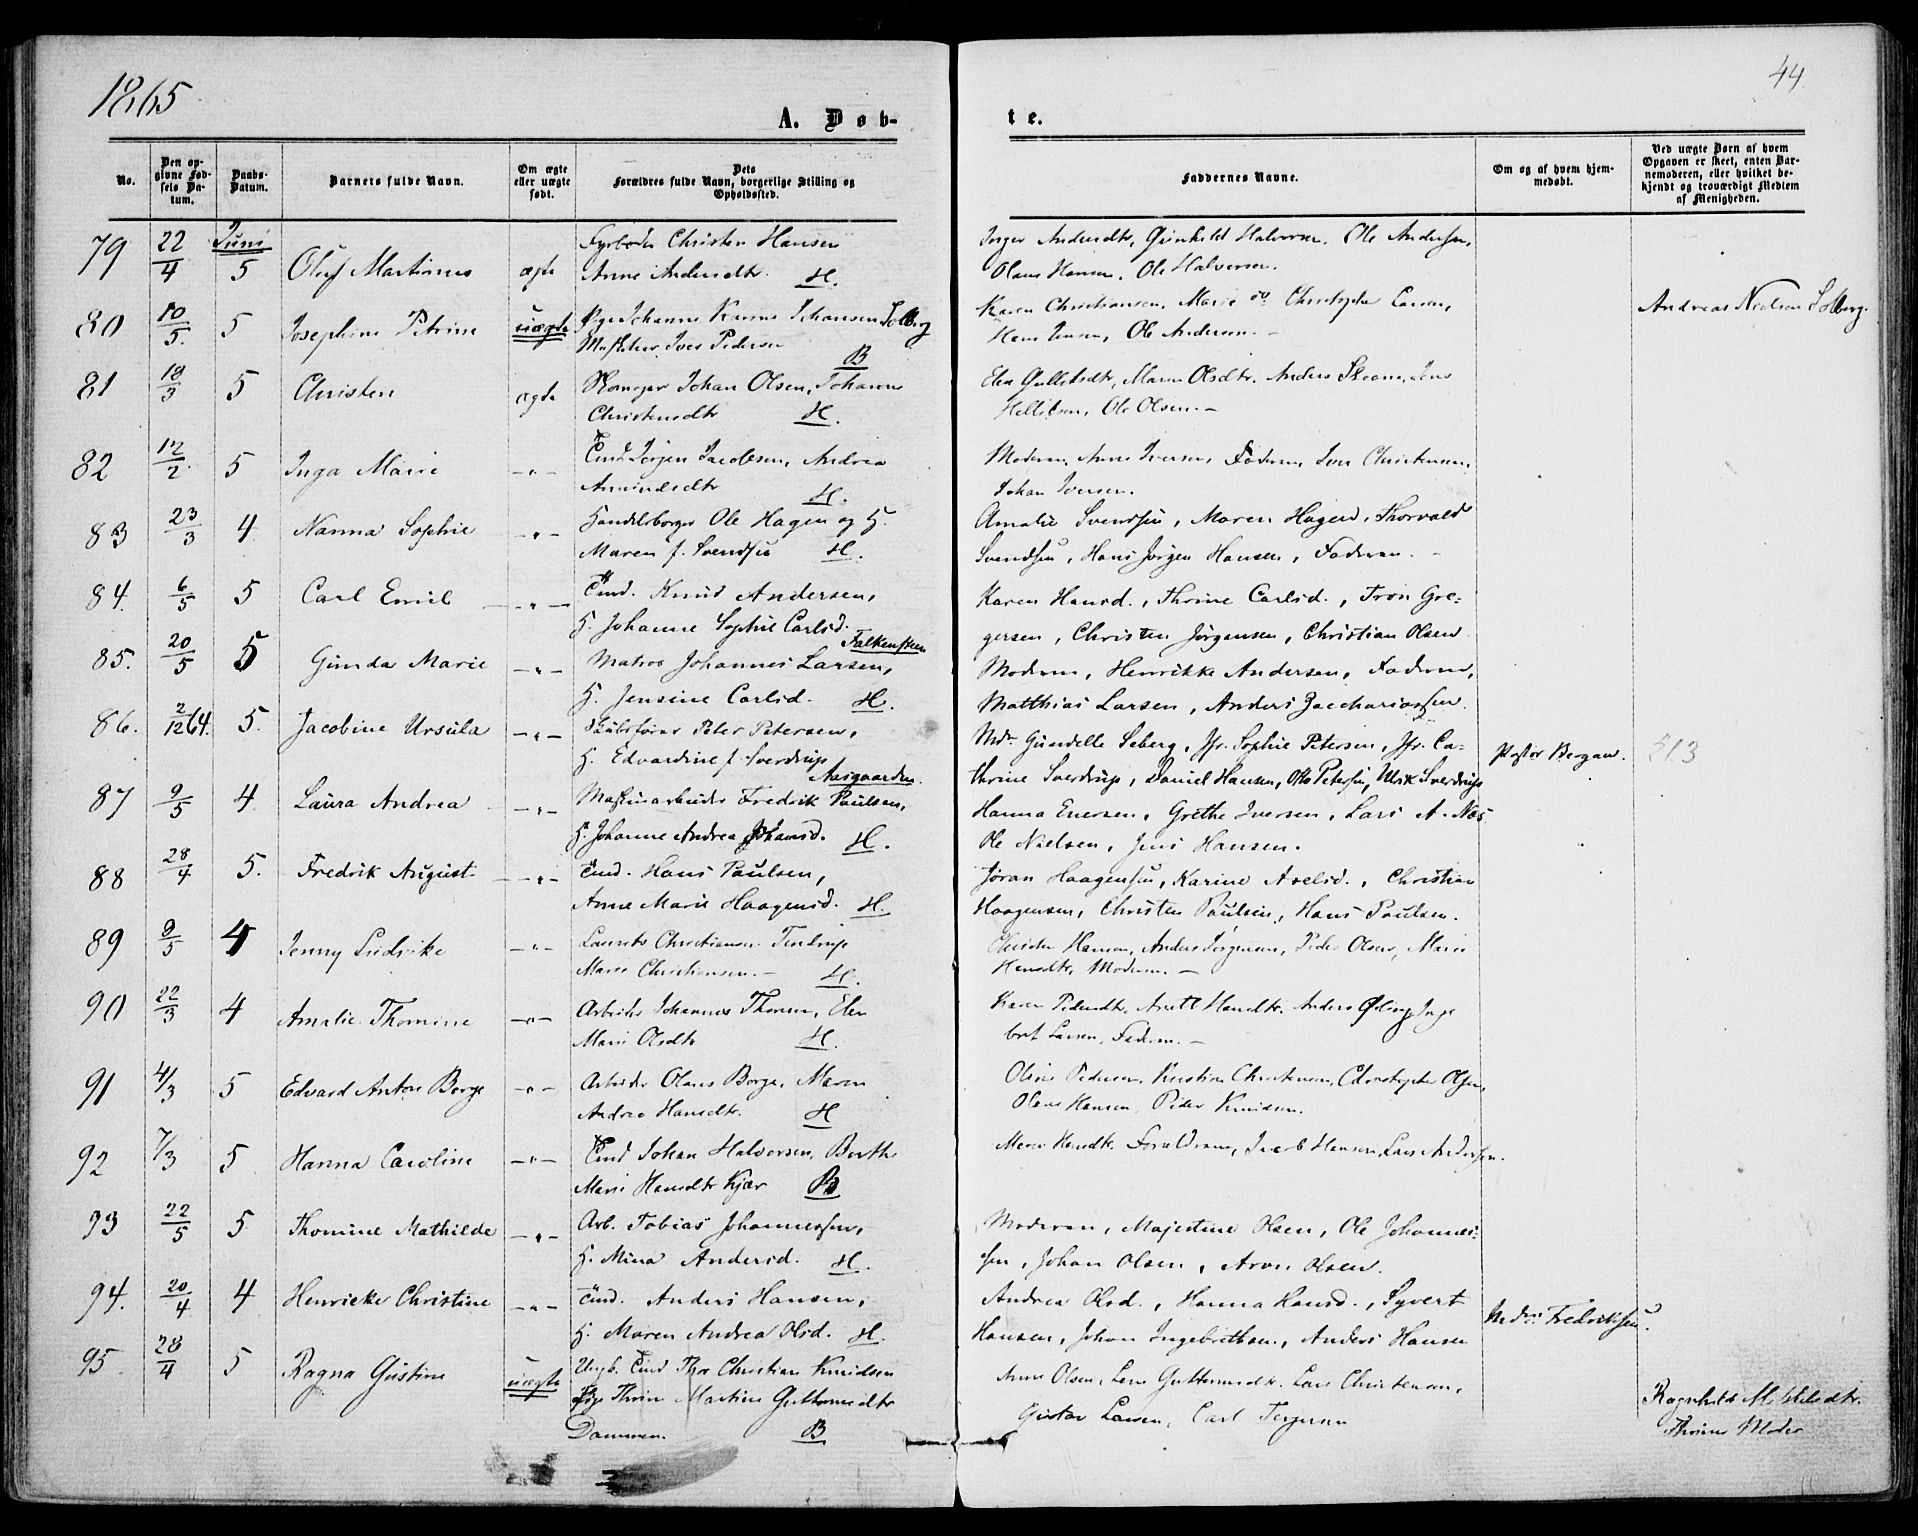 1865
44
A. Døb-
te.
No.
Den op-
givne Fød-
sels Da-
tum.
Daabs-
Datum.
Barnets fulde Navn.
Om ægte
eller uægte
født.
Dets
Forældres fulde Navn, borgerlige Stilling og
Opholdssted.
Faddernes Navne.
Om og af hvem hjem-
medøbt.
Ved uægte Børn af hvem
Opgaven er skeet, enten Bar-
nemoderen, eller hvilket be-
kjendt og troværdigt Medlem
af Menigheden.
Juni
79 22/4 5 Oluf Martinus ægte Fyrbøder Christen Hansen
Anne Andersdtr. H.
Inger Andersdtr, Gunhild Halvorsen. Ole Andersen,
Olaus Hansen. Ole Halvorsen.
80 10/5. 5 Josephine Petrine uægte Pige Johanne Karine Johansen Solberg
Iver Pedersen B
Karen Christiansen, Marie og Christopher Larsen,
Hans Jensen, Ole Andersen.
Andreas Nielsen Solberg.
81 18/3 5 Christen ægte Johan Olsen, Johanne
Christensdtr H.
Maren Olsdtr. Anders
Ole Olsen. -
82 12/2. 5 Inga Marie -"- Tømd. Jørgen Jacobsen, Andrea
Amundsdtr H.
Moderen, Anne Iversen, Faderen, Iver Christensen,
Johan Iversen.
83 23/3 4. Nanna Sophie -"- Handelsborger Ole Hagen og H.
Maren f. Svendsen H.
Amalie Svendsen, Maren Hagen, Thorvald
Svendsen, Hans Jørgen Hansen, Faderen. -
84. 6/5 5 Carl Emil -"- Tømd. Knud Andersen,
H. Johanne Sophie Carlsd.
Falkensten
Karen Hansd., Thrine Carlsd., Tron Gre-
gersen, Christen Jørgensen, Christian Olsen
85. 20/5 5 Gunda Marie -"- Matros Johannes Larsen,
H. Jensine Carlsd. H.
Moderen, Henrikke Andersen, Faderen,
Matthias Larsen, Anders Zacchariassen.
86. 2/12 64. 5. Jacobine Ursula -"- Skibsfører Peter Petersen,
H. Edvardine f. Sverdrup
Aasgaarden.
Md. Gundelle Seberg, Jfr. Sophie Petersen, Jfr. Ca-
thrine Sverdrup, Daniel Hansen, Otto Petersen, Ulrik Sverdrup
Pastor Bergan. 313
87 9/5 4. Laura Andrea -"- Maskinarbeider Fredrik Paulsen,
H. Johanne Andrea Johansd. H.
Hanna Evensen, Grethe Iversen, Lars A. Næs
Ole Nielsen, Jens Hansen.
88 28/4 5. Fredrik August -"- Tømd. Hans Paulsen,
Anne Marie Haagensd. H.
Jøran Haagensen, Karine Axelsd., Christian
Haagensen, Christen Paulsen, Hans Paulsen.
89 9/5 4 Jenny Ludvike -"- Laurits Christiansen
Marie Christiansen. - H.
Christen Hansen, Anders Jørgensen, Peder Olsen, Marie
Hansdtr, Moderen. -
90 22/3 4 Amalie Thomine -"- Arbeider Johannes Thorsen, Elen
Marie Olsdtr H.
Karen Pedersdtr. Anett Hansdtr. Anders Inge
bret Larsen, Faderen. -
91 4/3 5 Edvard Anton Borge -"- Arbeider Olaus Borge, Maren
Andrea Hansdtr. H
Oline Pedersen, Kirstine Christensen, Christopher Olsen,
Olaus Hansen, Peder Knudsen.
92 7/3 5 Hanna Caroline -"- Tømd. Johan Halvorsen, Berthe
Marie Hansdtr Kjær B
Maren Hansdtr. Forældrene, Jacob Hansen, Lars Andersen.
93 22/5 5 Thomine Mathilde -"- Arb. Tobias Johannessen,
H. Mina Andersd. H.
Moderen, Majestine Olsen, Ole Johannes-
sen, Johan Olsen, Aron Olsen.
94. 20/4 4 Henrikke Christine -"- Tømd. Anders Hansen,
H. Maren Andrea Olsd. H.
Andrea Olsd., Hanna Hansd., Syvert
Hansen, Johan Ingebrethsen, Anders Hansen
Md. Fredriksen.
95. 28/4 5 Ragna Gustine uægte Ungk. Tømd. Thor Christian Knudsen
Pige Thrine Martine Guttormsdtr
Dammen. B
Anne Olsen, Lene Guttormsdtr. Lars Christensen,
Gustav Larsen, Carl Torgersen
Ragnhild
Thrines Moder